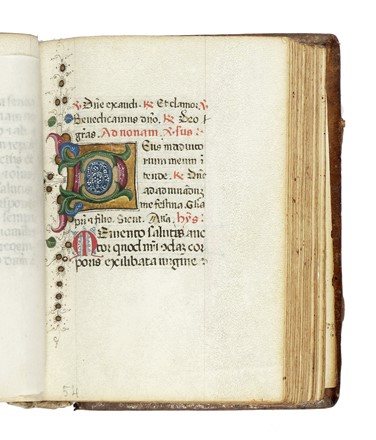 ℣ Dñe exaudi. ℟ Et clamor. ℣
Benedicamus dño. ℟ Deo
gr̃as. Ad nonam. ℣sus:
Eus in adiuto
rium meum in
tende. ℟ Dñe
ad adiuuandũ
me festina. Gl̃a
pr̃i ⁊ filio. Sicut. hỹs:
Memento salutis auc
tor quod nr̃i
poris ex illibata uirgine
54